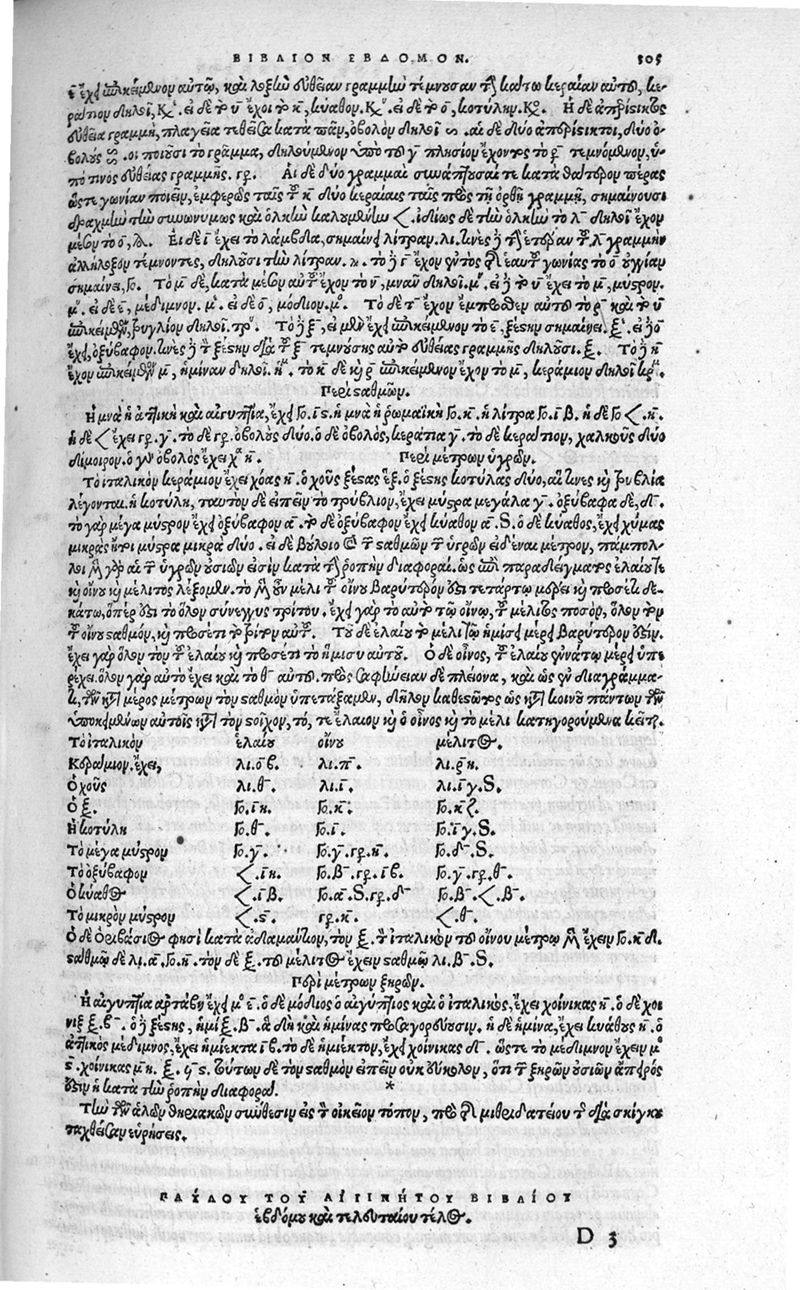 ΒΙΒΛΙΟΝ ΕΒΔΟΜΟΝ. 505
ἔχῃ ὑποκείμενον αὐτῷ, καὶ λοξὴν εὐθεῖαν γραμμὴν τέμνουσαν τὴν κάτω κεραίαν αὐτοῦ, κε
ράτιον δηλοῖ, εἰ δὲ τὸ υ ἔχοι τὸ κ, κύαθον. εἰ δὲ τὸ ο, κοτύλην. Η δὲ
εὐθεῖα γραμμὴ, πλαγεῖα τεθεῖσα κατὰ ὀβολὸν δηλοῖ αἱ δὲ δύο δύο ὀ
βολούς οἱ ποιοῦσι τὸ γράμμα, δηλούμενον ὑπὸ τοῦ γ πλησίον ἔχοντος τὸ ρ τεμνόμενον, ὑ
πό τινος εὐθείας γραμμῆς. γρ. Αἱ δὲ δύο γραμμαὶ συνάπτουσαί τε κατὰ θάτερον πέρας
ὥστε γωνίαν ποιεῖν, ἐμφερῶς ταῖς τοῦ κ δύο κεραίαις ταῖς πρὸς τῇ ὀρθῇ γραμμῇ, σημαίνουσι
δραχμὴν τὴν συνωνύμως καὶ ὁλκὴν καλουμένην <. ἰδίως δὲ τὴν ὁλκὴν τὸ λ δηλοῖ ἔχον
μέσον τὸ ο, Εἰ δὲ ι ἔχει τὸ λάμβδα, σημαίνει λίτραν. λι. τινὲς δὲ τὴν ἑτέραν τοῦ λ γραμμὴν
τέμνοντες, δηλοῦσι τὴν λίτραν. τὸ δὲ γ ἔχον ἐντὸς τῆς ἑαυτοῦ γωνίας τὸ ο οὐγγίαν
σημαίνει, γο. Τὸ μ δὲ, κατὰ μέσον αὐτοῦ ἔχον τὸ ν, μνᾶν δηλοῖ. μ. εἰ δὲ τὸ υ ἔχει τὸ μ, μύστρον.
μ. εἰ δὲ ε, μέδιμνον. μ. εἰ δὲ ο, μόδιον. μ. Τὸ δὲ τ ἔχον ἔμπροσθεν αὐτοῦ τὸ ρ καὶ τὸ υ
ὑποκείμενον, τρυβλίον δηλοῖ. τρ. Τὸ δὲ ξ, εἰ μὲν ἔχῃ ὑποκείμενον τὸ ε, ξέστην σημαίνει. ξ. εἰ δὲ ο
ἔχῃ, ὀξύβαφον. τινὲς δὲ τὸν ξέστην διὰ τοῦ ξ τεμνούσης αὐτὸ εὐθείας γραμμῆς δηλοῦσι. ξ. Τὸ δὲ η
ἔχον ὑποκείμενον μ, ἡμίναν δηλοῖ. η. τὸ κ δὲ καὶ ρ ὑποκείμενον ἔχον τὸ μ, κεράμιον δηλοῖ κρ.
Περὶ σταθμῶν.
Η μνᾶ ἡ ἀττικὴ καὶ αἰγυπτία, ἔχῃ γο. ις. ἡ μνᾶ ἡ ῥωμαϊκὴ γο. κ. ἡ λίτρα γο. ιβ. ἡ δὲ γο <. η.
ἡ δὲ < ἔχει γρ. γ. τὸ δὲ γρ. ὀβολοὺς δύο. ὁ δὲ ὀβολὸς, κεράτια γ. τὸ δὲ κεράτιον, χαλκοῦς δύο
δίμοιρον. ὁ γοῦν ὀβολὸς ἔχει χ η. Περὶ μέτρων ὑγρῶν.
Τὸ ἰταλικὸν κεράμιον ἔχει χόας η. ὁ χοῦς ξέστας ἕξ. ὁ ξέστης κοτύλας δύο, αἵτινες καὶ τρυβλία
λέγονται. ἡ κοτύλη, ταυτὸν δὲ εἰπεῖν τὸ τρύβλιον, ἔχει μύστρα μεγάλα γ. ὀξύβαφα δὲ, δ.
τὸ γὰρ μέγα μύστρον ἔχῃ ὀξύβαφον α. τὸ δὲ ὀξύβαφον ἔχῃ κύαθον α. S. ὁ δὲ κύαθος, ἔχῃ χήμας
μικρὰς ἤτοι μύστρα μικρὰ δύο. εἰ δὲ βούλοιο καὶ τὸν σταθμὸν τῶν ὑγρῶν εἰδέναι μέτρον, πάμπολ
λοι μὲν γὰρ αἱ τῶν ὑγρῶν οὐσιῶν εἰσὶν κατὰ τὴν ῥοπὴν διαφοραί. ὡς ἐπὶ παραδείγματος ἐλαίου τε
καὶ οἴνου καὶ μέλιτος λέξομεν. τὸ μὲν οὖν μέλι τοῦ οἴνου βαρύτερον ἐστὶ τετάρτῳ μέρει καὶ προσέτι δε
κάτῳ, ὅπερ ἐστὶ τὸ ὅλον σύνεγγυς τρίτον. ἔχῃ γὰρ τὸ αὐτὸ τῷ οἴνῳ, τοῦ μέλιτος ποσὸν, ὅλον τὸν
τοῦ οἴνου σταθμὸν, καὶ προσέτι τὸ τρίτον αὐτοῦ. Τοῦ δὲ ἐλαίου τὸ μέλι τῷ ἡμίσει μέρει βαρύτερον ἐστίν.
ἔχει γὰρ ὅλον τὸν τοῦ ἐλαίου καὶ προσέτι τὸ ἥμισυ αὐτοῦ. Ο δὲ οἶνος, τοῦ ἐλαίου ἐννάτῳ μέρει ὑπε
ρέχει. ὅλον γὰρ αὐτὸ ἔχει καὶ τὸ θ αὐτοῦ. πρὸς σαφήνειαν δὲ πλείονα, καὶ ὡς ἐν διαγράμμα
τι, τῶν κατὰ μέρος μέτρων τὸν σταθμὸν ὑπετάξαμεν, δηλονότι καθεστῶτος ὡς κατὰ κοινοῦ πάντων τῶν
ὑποκειμένων αὐτοῖς κατὰ τὸν στοῖχον, τό, τε ἔλαιον καὶ ὁ οἶνος καὶ τὸ μέλι κατηγορούμενα κεῖται.
Τὸ ἰταλικὸν ἐλαίου οἴνου μέλιτος.
Κεράμιον, ἔχει, λι. οβ. λι. π. λι. ρη.
Ο χοῦς λι. θ. λι. ι. λι. ιγ. S.
Ο ξ. γο. ιη. γο. κ. γο. κζ.
Η κοτύλη γο. θ. γο. ι. γο. ιγ. S.
Τὸ μέγα μύστρον γο. γ. γο. γ. γρ. η. γο. δ. S.
Τὸ ὀξύβαφον <. ιη. γο. β. γρ. ιβ. γο. γ. γρ. θ.
Ο κύαθος <. ιβ. γο. α. S. γρ. δ γο. β. <. β.
Τὸ μικρὸν μύστρον <. ς. γρ. κ. <. θ.
Ο δὲ ὀριβάσιος φησὶ κατὰ ἀδαμάντιον, τὸν ξ. τὸν ἰταλικὸν τοῦ οἴνου μέτρῳ μὲν ἔχειν γο. κδ.
σταθμῷ δὲ λι. α. γο. η. τὸν δὲ ξ. τοῦ μέλιτος ἔχειν σταθμῷ λι. β. S.
Περὶ μέτρων ξηρῶν.
Η αἰγυπτία ἀρτάβη ἔχῃ μ ε. ὁ δὲ μόδιος ὁ αἰγύπτιος καὶ ὁ ἰταλικὸς, ἔχει χοίνικας η. ὁ δὲ χοι
νιξ ξ. β. ὁ δὲ ξέστης, ἡμίξ. β. ἃ δὴ καὶ ἡμίνας προσαγορεύουσιν. ἡ δὲ ἡμίνα, ἔχει κυάθους η. ὁ
ἀττικὸς μέδιμνος, ἔχει ἡμίεκτα ιβ. τὸ δὲ ἡμίεκτον, ἔχῃ χοίνικας δ. ὥστε τὸ μέδιμνον ἔχειν μ
ς. χοίνικας μη. ξ. ϟς. τούτων δὲ τὸν σταθμὸν εἰπεῖν οὐκ εὔκολον, ὅτι τῶν ξηρῶν οὐσιῶν ἄπειρός
ἐστιν ἡ κατὰ τὴν ῥοπὴν διαφορά. *
Τὴν τῶν ἁλῶν θηριακῶν σύνθεσιν εἰς τὸν οἰκεῖον τόπον, πρὸ τῆς μιθριδατείου τοῦ διὰ σκίγκου
ταχθεῖσαν εὑρήσεις.
ΠΑΥΛΟΥ ΤΟΥ ΑΙΓΙΝΗΤΟΥ ΒΙΒΛΙΟΥ
ἑβδόμου καὶ τελευταίου τέλος.
D 3